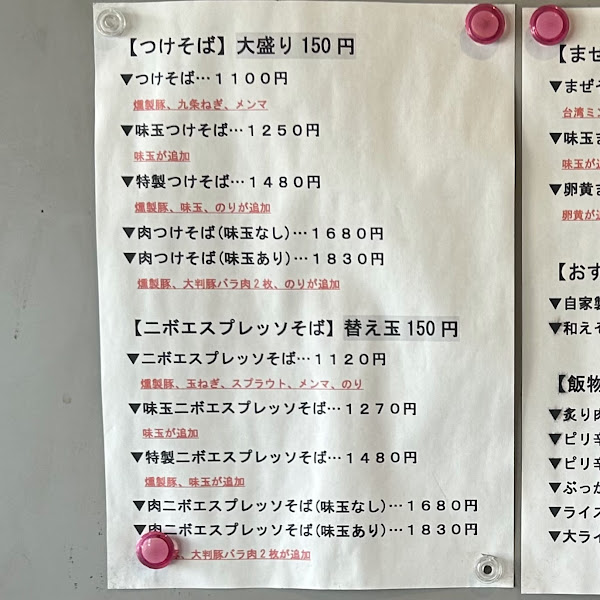 【つけそば】大盛り150円
▼つけそば…１１００円
燻製豚、九条ねぎ、メンマ
▼味玉つけそば…１２５０円
味玉が追加
▼特製つけそば…１４８０円
燻製豚、味玉、のりが追加
▼肉つけそば(味玉なし)…１６８０円
▼肉つけそば(味玉あり)…１８３０円
燻製豚、大判豚バラ肉２枚、のりが追加
【ニボエスプレッソそば】替え玉150円
▼ニボエスプレッソそば…１１２０円
燻製豚、玉ねぎ、スプラウト、メンマ、のり
▼味玉ニボエスプレッソそば…１２７０円
味玉が追加
▼特製ニボエスプレッソそば…１４８０円
燻製豚、味玉が追加
▼肉ニボエスプレッソそば(味玉なし)…１６８０円
▼肉ニボエスプレッソそば(味玉あり)…１８３０円
豚、大判豚バラ肉２枚が追加
【まぜ
▼まぜそ
台湾ミン
▼味玉ま
味玉が追
▼卵黄ま
卵黄が追
【おす
▼自家製
▼和えそ
【飯物
▼炙り肉
▼ピリ辛
▼ピリ辛
▼ぶっか
▼ライス
▼大ライ